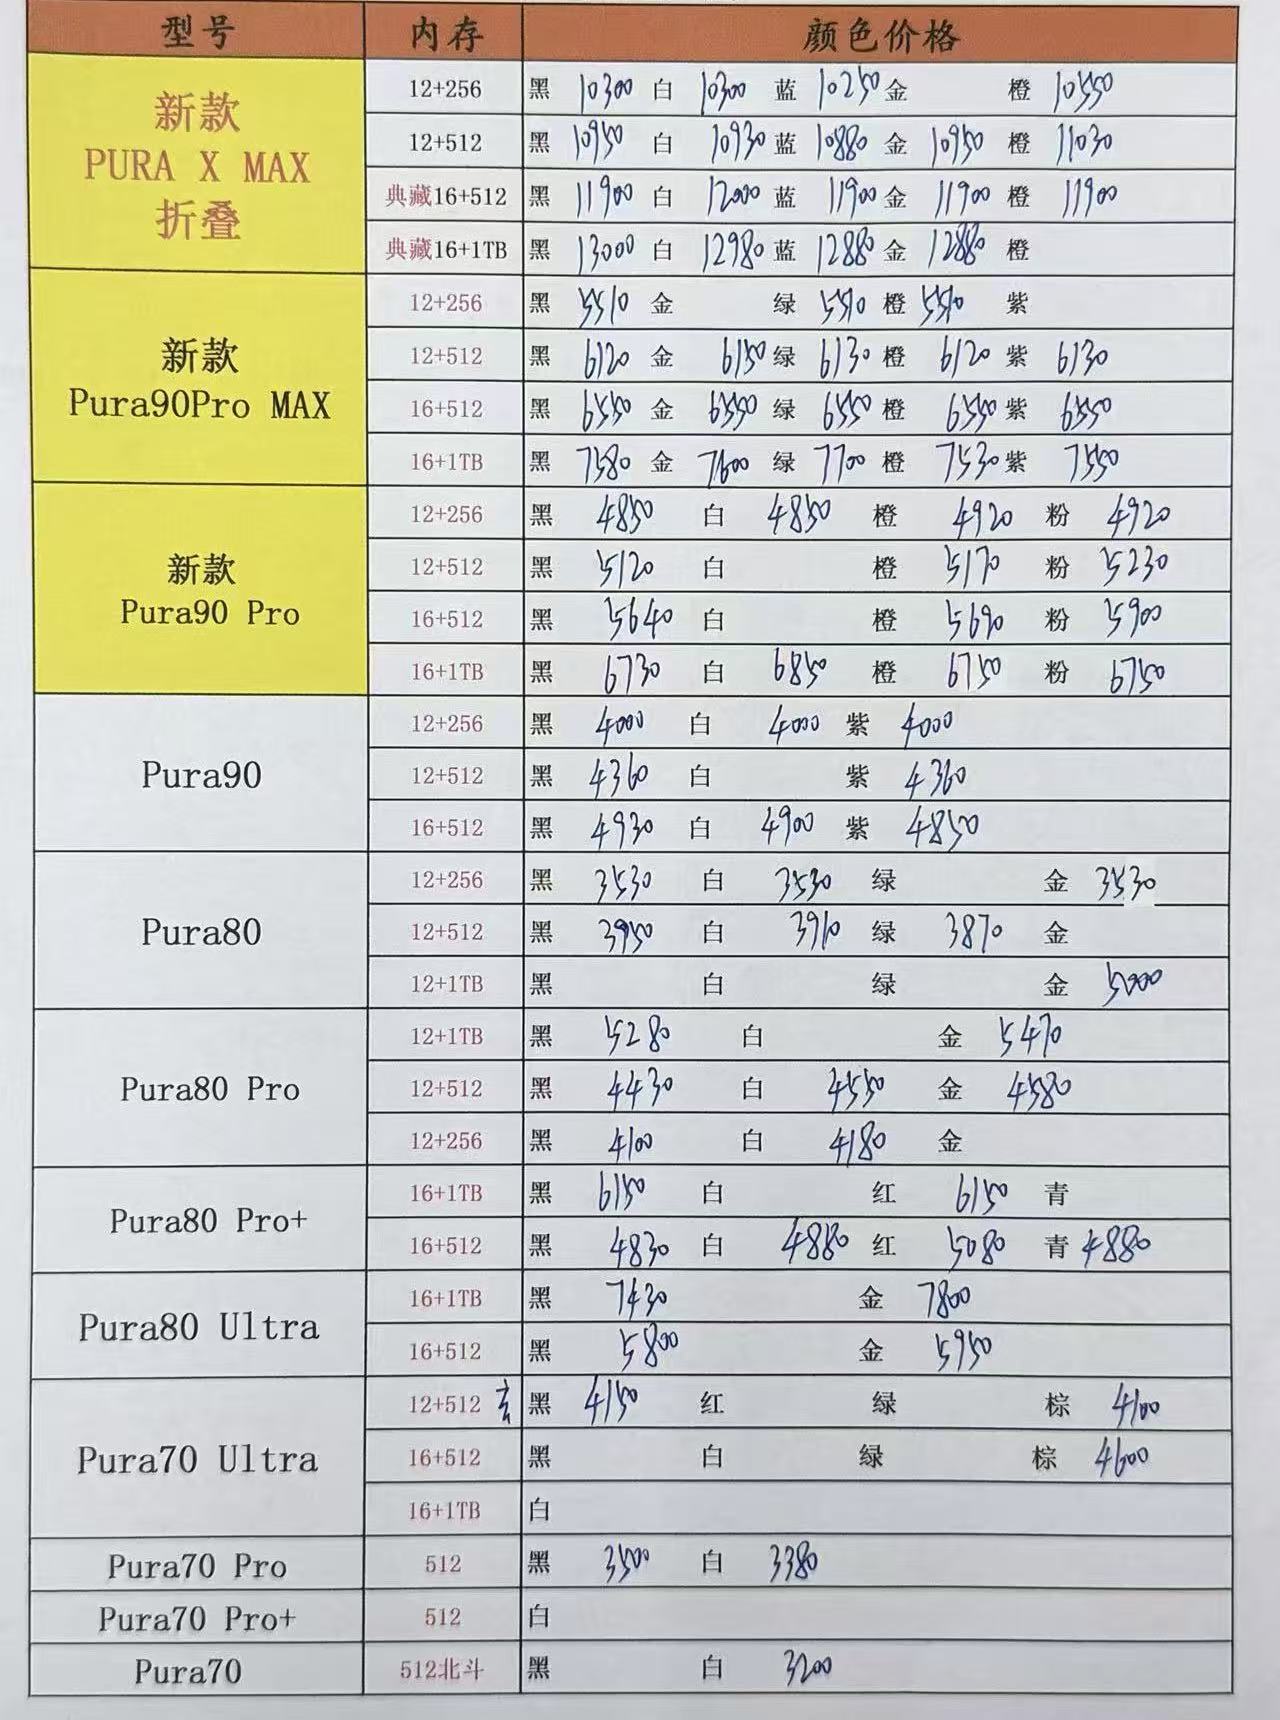 型号 内存 颜色价格
新款
PURA X MAX
折叠
12+256 黑 10300 白 10300 蓝 10250 金 橙 10550
12+512 黑 10950 白 10930 蓝 10880 金 10950 橙 11030
典藏16+512 黑 11900 白 12000 蓝 11900 金 11900 橙 11900
典藏16+1TB 黑 13000 白 12980 蓝 12880 金 12880 橙
新款
Pura90Pro MAX
12+256 黑 5510 金 绿 5510 橙 5510 紫
12+512 黑 6120 金 6150 绿 6130 橙 6120 紫 6130
16+512 黑 6550 金 6550 绿 6550 橙 6550 紫 6550
16+1TB 黑 7580 金 7600 绿 7700 橙 7530 紫 7550
新款
Pura90 Pro
12+256 黑 4850 白 4850 橙 4920 粉 4920
12+512 黑 5120 白 橙 5170 粉 5230
16+512 黑 5640 白 橙 5690 粉 5900
16+1TB 黑 6730 白 6850 橙 6750 粉 6750
Pura90
12+256 黑 4000 白 4000 紫 4000
12+512 黑 4360 白 紫 4360
16+512 黑 4930 白 4900 紫 4850
Pura80
12+256 黑 3530 白 3530 绿 金 3530
12+512 黑 3950 白 3910 绿 3870 金
12+1TB 黑 白 绿 金 5000
Pura80 Pro
12+1TB 黑 5280 白 金 5470
12+512 黑 4430 白 4550 金 4580
12+256 黑 4100 白 4180 金
Pura80 Pro+
16+1TB 黑 6150 白 红 6150 青
16+512 黑 4830 白 4880 红 5080 青 4880
Pura80 Ultra
16+1TB 黑 7430 金 7800
16+512 黑 5800 金 5950
Pura70 Ultra
12+512 玄 黑 4150 红 绿 棕 4100
16+512 黑 白 绿 棕 4600
16+1TB 白
Pura70 Pro 512 黑 3500 白 3380
Pura70 Pro+ 512 白
Pura70 512北斗 黑 白 3200